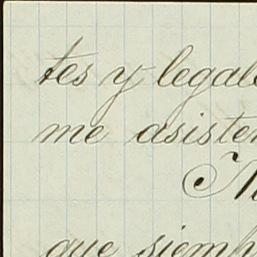 tes y legale
me asisten
que siemp